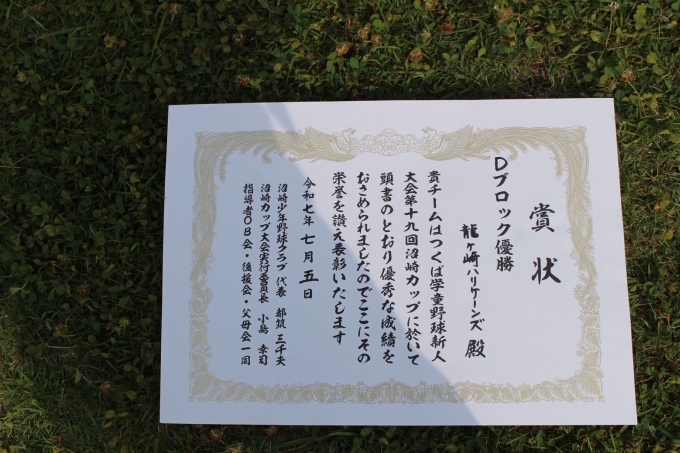 賞状
Dブロック優勝
龍ヶ崎ハリケーンズ 殿
貴チームはつくば学童野球新人
大会第十九回沼崎カップに於いて
頭書のとおり優秀な成績を
おさめられましたのでここにその
栄誉を讃え表彰いたします
令和七年 七月 五日
沼崎少年野球クラブ 代表 都筑 三千夫
沼崎カップ大会実行委員長 小島 幸司
指導者OB会・後援会・父母会一同